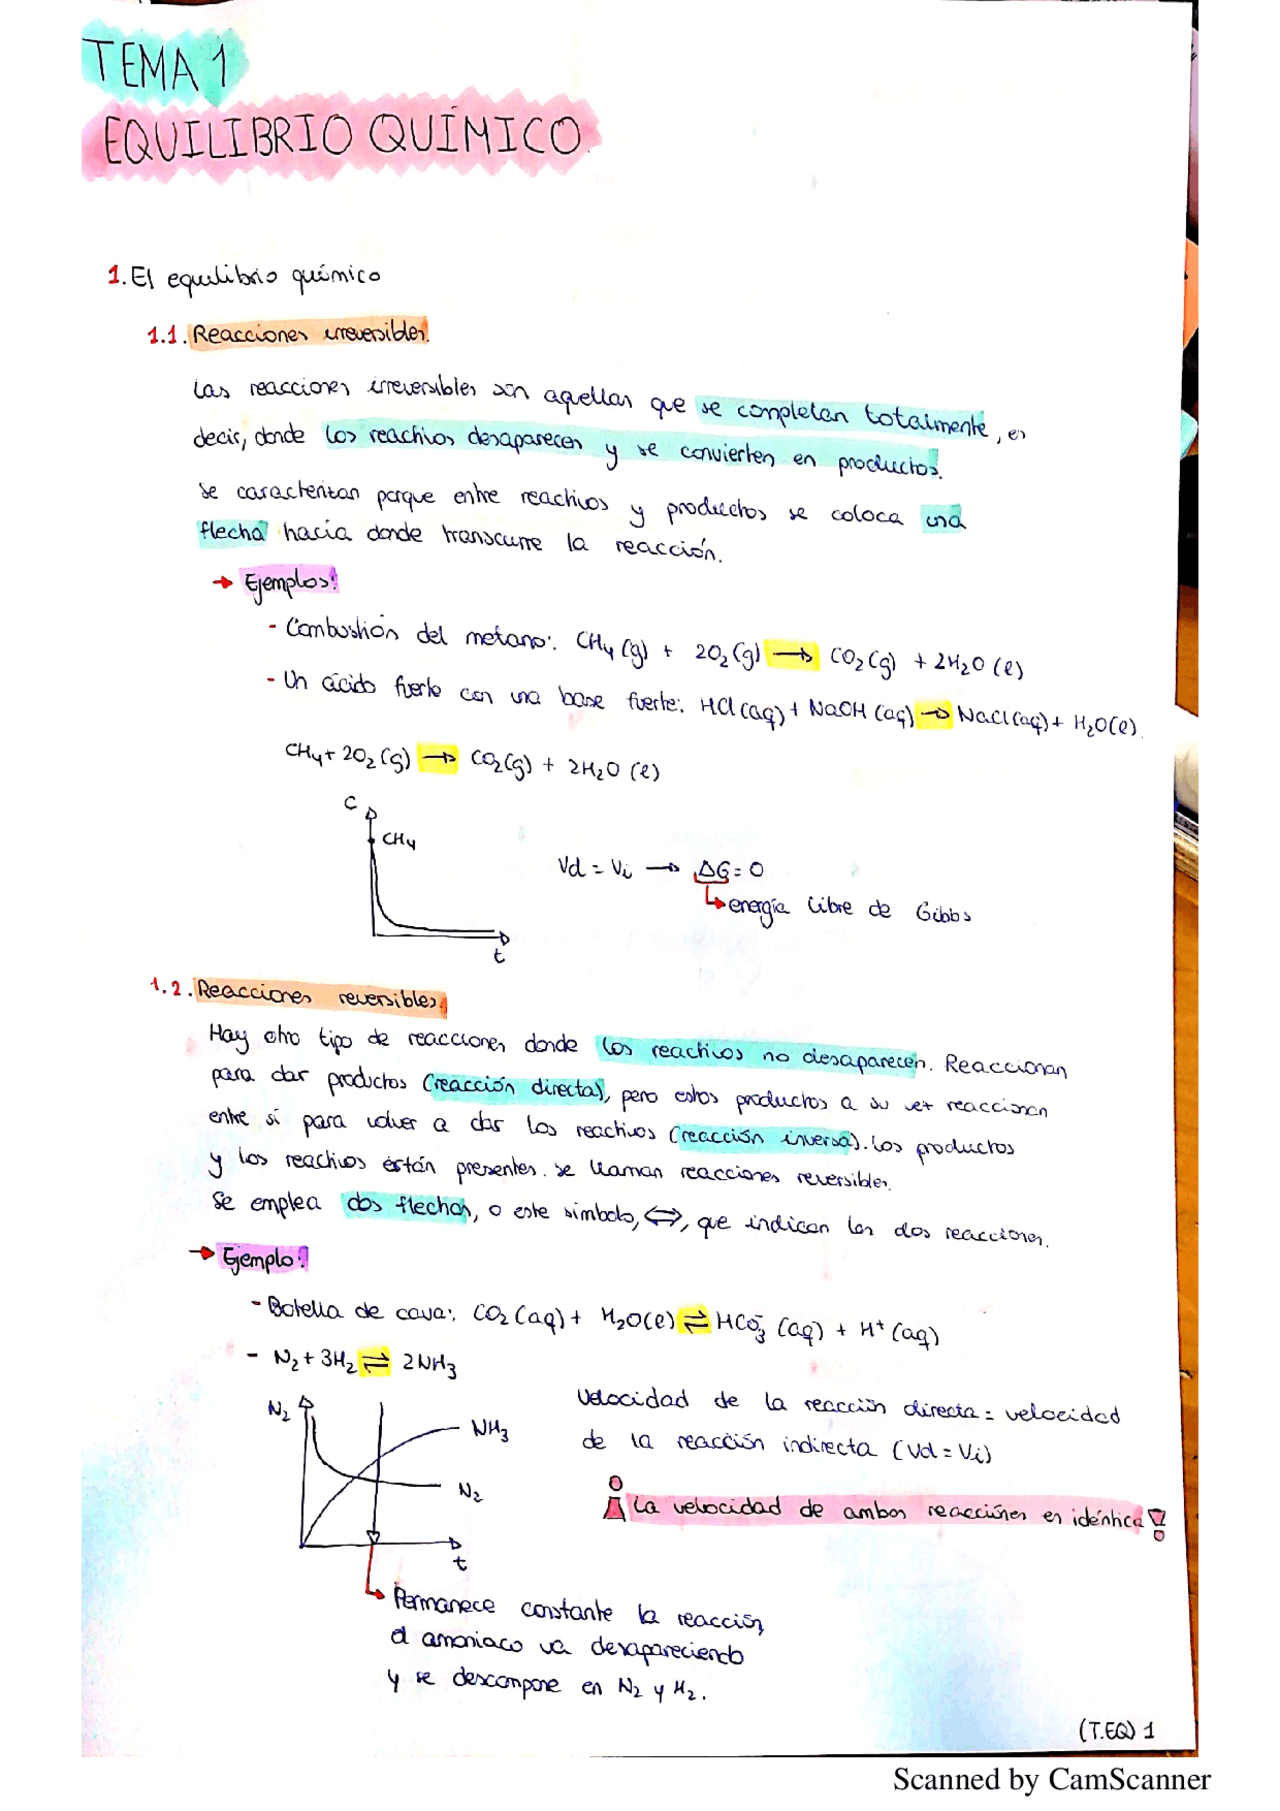 TEMA 1
EQUILIBRIO QUÍMICO
1. El equilibrio químico
1.1. Reacciones irreversibles.
Las reacciones irreversibles son aquellas que se completan totalmente, es
decir, donde los reactivos desaparecen y se convierten en productos.
Se caracterizan porque entre reactivos y productos se coloca una
flecha hacia donde transcurre la reacción.
→ Ejemplos:
- Combustión del metano: CH₄ (g) + 2O₂ (g) → CO₂ (g) + 2H₂O (l)
- Un ácido fuerte con una base fuerte: HCl (aq) + NaOH (aq) → NaCl (aq) + H₂O (l).
CH₄ + 2O₂ (g) → CO₂ (g) + 2H₂O (l)
C
CH₄
t
Vd = Vi → ΔG = 0
energía libre de Gibbs
1.2. Reacciones reversibles.
Hay otro tipo de reacciones donde los reactivos no desaparecen. Reaccionan
para dar productos (reacción directa), pero estos productos a su vez reaccionan
entre sí para volver a dar los reactivos (reacción inversa). Los productos
y los reactivos están presentes. Se llaman reacciones reversibles.
Se emplea dos flechas, o este símbolo, ⇔, que indican las dos reacciones.
→ Ejemplo:
- Botella de cava: CO₂ (aq) + H₂O (l) ⇌ HCO₃⁻ (aq) + H⁺ (aq)
- N₂ + 3H₂ ⇌ 2NH₃
N₂
NH₃
N₂
t
Velocidad de la reacción directa = velocidad
de la reacción indirecta (Vd = Vi)
¡La velocidad de ambas reacciones es idéntica!
Permanece constante la reacción,
el amoniaco va desapareciendo
y se descompone en N₂ y H₂.
(T.EQ) 1
Scanned by CamScanner